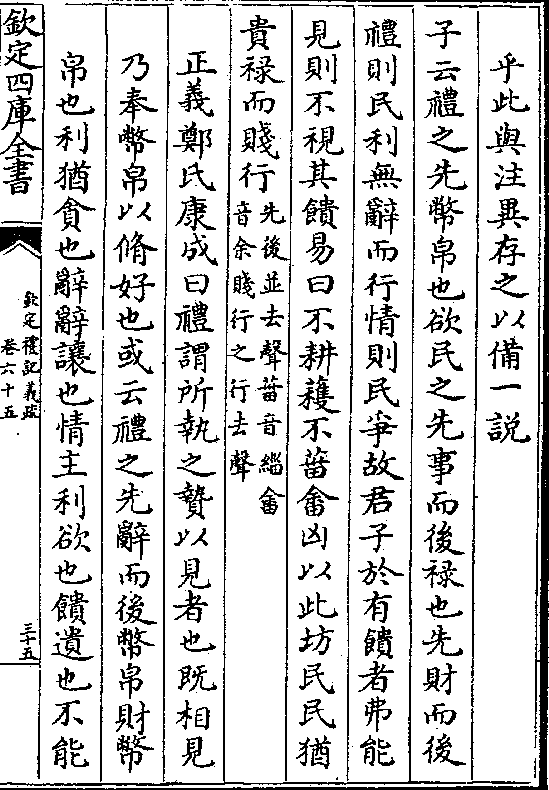 乎此與注異存之以備一説
子云禮之先幣帛也欲民之先事而後禄也先財而後
禮則民利無辭而行情則民爭故君子於有饋者弗能
見則不視其饋易曰不耕穫不菑畬凶以此坊民民猶
貴禄而賤行先後並去聲菑音緇畬
音余賤行之行去聲
正義鄭氏康成曰禮謂所執之贄以見者也既相見
乃奉幣帛以脩好也或云禮之先辭而後幣帛財幣
帛也利猶貪也辭辭讓也情主利欲也饋遺也不能
欽定四庫全書
欽定禮記義疏
卷六十五
三十五